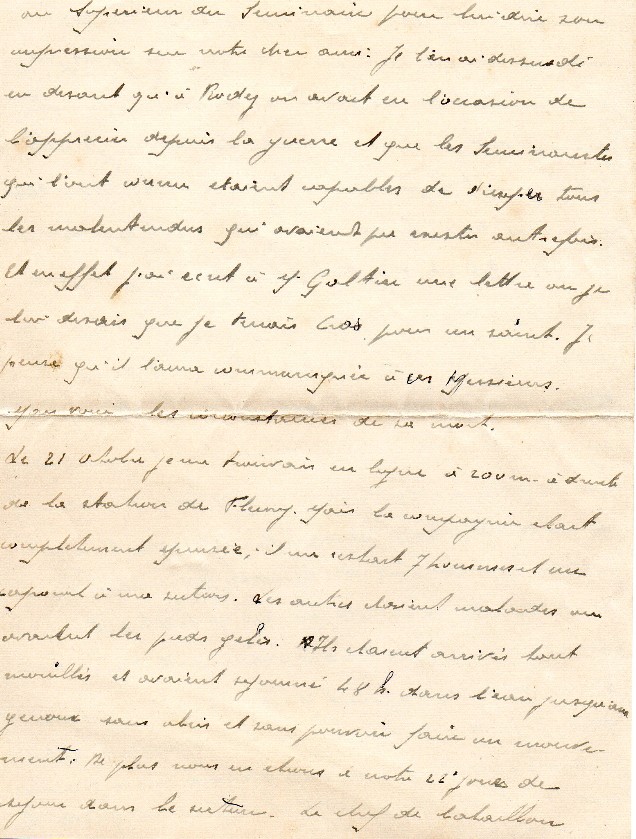 au Supérieur du Séminaire pour lui dire son
impression sur notre cher ami. Je l'en ai dissuadé
en disant qu'à Rodez on avait eu l'occasion de
l'apprécier depuis la guerre et que les Séminaristes
qui l'ont connu étaient capables de dissiper tous
les malentendus qui avaient pu exister autrefois.
Et en effet j'ai écrit à M. Galtier une lettre où je
lui disais que je tenais Cros pour un saint. Je
pense qu'il l'aura communiquée à ces Messieurs.
Mais voici les circonstances de sa mort.
Le 21 octobre je me trouvais en ligne à 200 m. à droite
de la station de Fleury. Mais la compagnie était
complètement épuisée, il me restait 7 hommes et un
caporal à ma section. Les autres étaient malades ou
avaient les pieds gelés. Ils étaient arrivés tout
mouillés et avaient séjourné 48 h. dans l'eau jusqu'aux
genoux sans abris et sans pouvoir faire un mouve-
ment. De plus nous en étions à notre 22e jour de
séjour dans le secteur. Le chef de bataillon